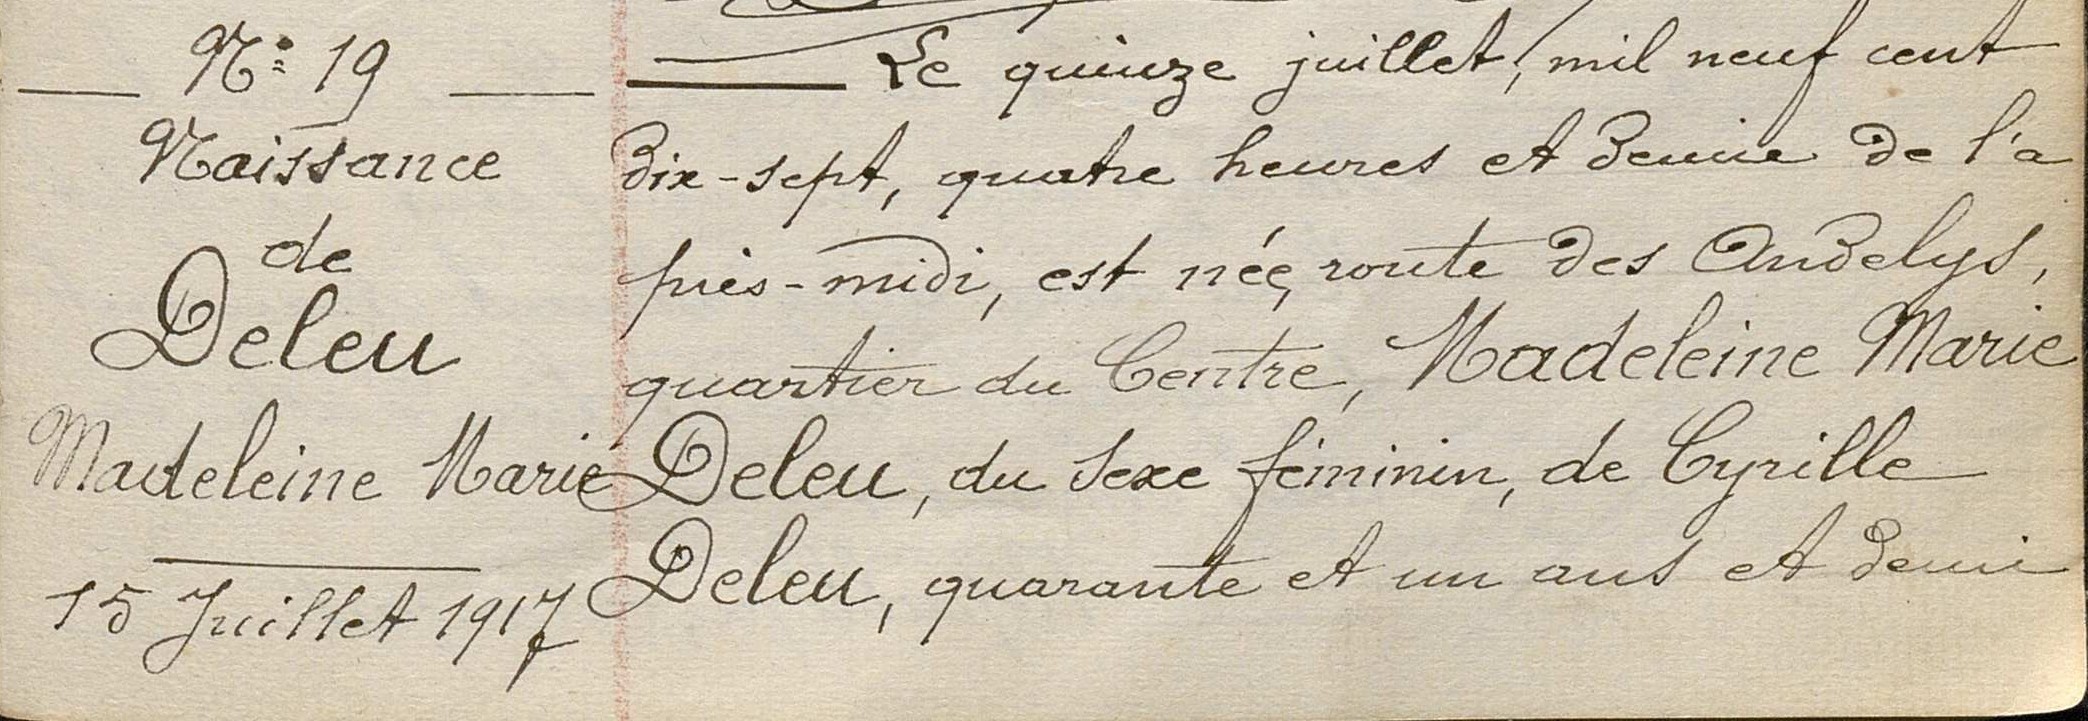 N° 19
Naissance
de
Deleu
Madeleine Marie
15 Juillet 1917
Le quinze juillet, mil neuf cent
dix-sept, quatre heures et demie de l'a
près-midi, est née, route des Andelys,
quartier du Centre, Madeleine Marie
Deleu, du sexe féminin, de Cyrille
Deleu, quarante et un ans et demi